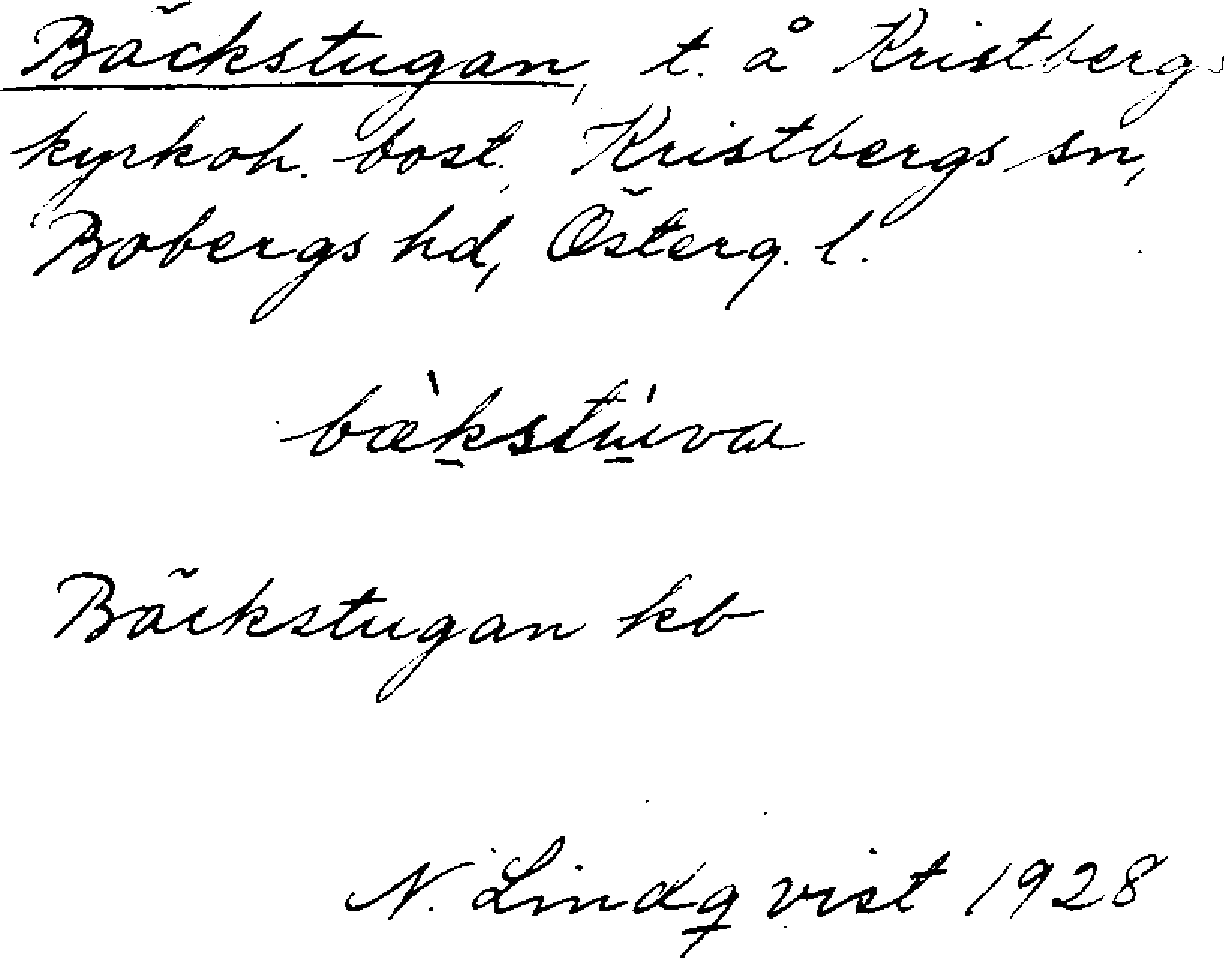 Bäckstugan, t. å Kristbergs
kyrkoh. bost. Kristbergs sn,
Bobergs hd, Österg. l.
bæ̀kstúva
Bäckstugan kb
N. Lindqvist 1928